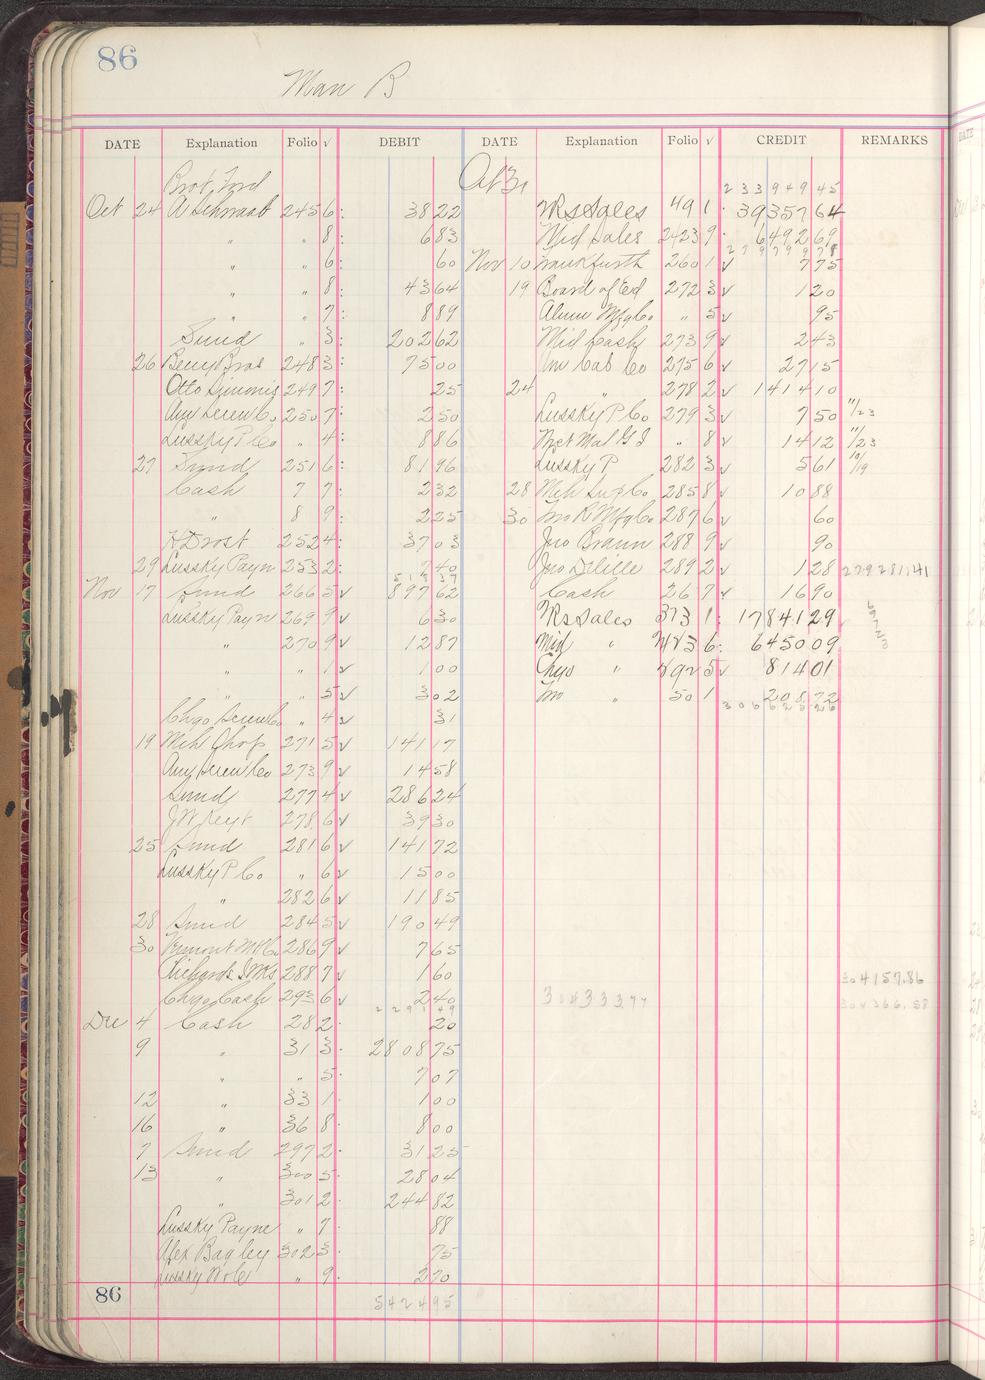 86
Man B
DATE Explanation Folio √ DEBIT DATE Explanation Folio √ CREDIT REMARKS
Brot Ford Oct 31 2 3 3 9 4 9 4 5
Oct 24 A Schwaab 245 6: 38 22 Ms Sales 49 1 · 39357 64
" " 8: 6 83 Mid Sales 242 3 9 · 6492 69
" " 6: 60 Nov 10 Frankfurth 260 1 √ 7 75
" " 8: 43 64 19 Board of Ed 272 3 √ 1 20
" " 7: 8 89 Alum Mfg Co. " 5 √ 95
Sund " 3: 202 62 Mid Cash 273 9 √ 2 43
26 Bery Bros 248 3: 75 00 Am Cas Co 275 6 √ 27 15
Otto Simonis 249 7: 25 24 " 278 2 √ 1414 10
Am Screw Co. 250 7: 2 50 Lussky P Co. 279 3 √ 7 50 11/23
Lussky P Co " 4: 8 86 " 8 √ 14 12 11/23
27 Sund 251 6: 81 96 Lussky P 282 3 √ 5 61 10/19
Cash 7 7: 2 32 28 285 8 √ 10 88
" 8 9: 2 25 30 287 6 √ 60
H Drost 252 4: 37 03 Jno Braun 288 9 √ 90
29 Lussky Payn 253 2: 7 40 Jno Delille 289 2 √ 1 28 279281.41
Nov 17 Sund 266 5 √ 897 62 Cash 26 7 √ 16 90
Lussky Payn 269 9 √ 6 30 Ms Sales 373 1: 17841 29
" 270 9 √ 12 87 Mid " 6: 6450 09
" " 1 √ 1 00 Chgo " 5 √ 814 01
" " 5 √ 3 02 " 50 1 208 72
Chgo Screw Co. " 4 √ 31 3 0 6 6 2 5 2 6
19 Meh Chop 271 5 √ 141 17
Am Screw Co 273 9 √ 14 58
Sund 277 4 √ 286 24
278 6 √ 39 30
25 Sund 281 6 √ 141 72
Lussky P Co. " 6 √ 15 00
" 282 6 √ 11 85
28 Sund 284 5 √ 190 49
30 Vermont 286 9 √ 7 65
Richards 288 7 √ 1 60 304157.86
Chgo Cash 293 6 √ 2 40
Dec 4 Cash 28 2 · 20
9 " 31 3 · 2808 75
" " 5 · 7 07
12 " 33 1 1 00
16 " 36 8 · 8 00
7 Sund 297 2 · 31 25
13 " 300 5 · 28 04
" 301 2 · 244 82
Lussky Payne " 7 · 88
Alex Bagley 302 3 · 75
Lussky " 9 · 2 70
86 5 4 2 4 9 5